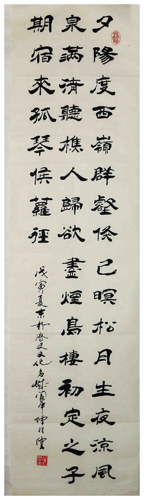 夕陽度西嶺群壑倏已暝松月生夜涼風
泉滿清聽樵人歸欲盡煙鳥棲初定之子
期宿來孤琴候蘿徑
戊寅夏於歷史文化名城